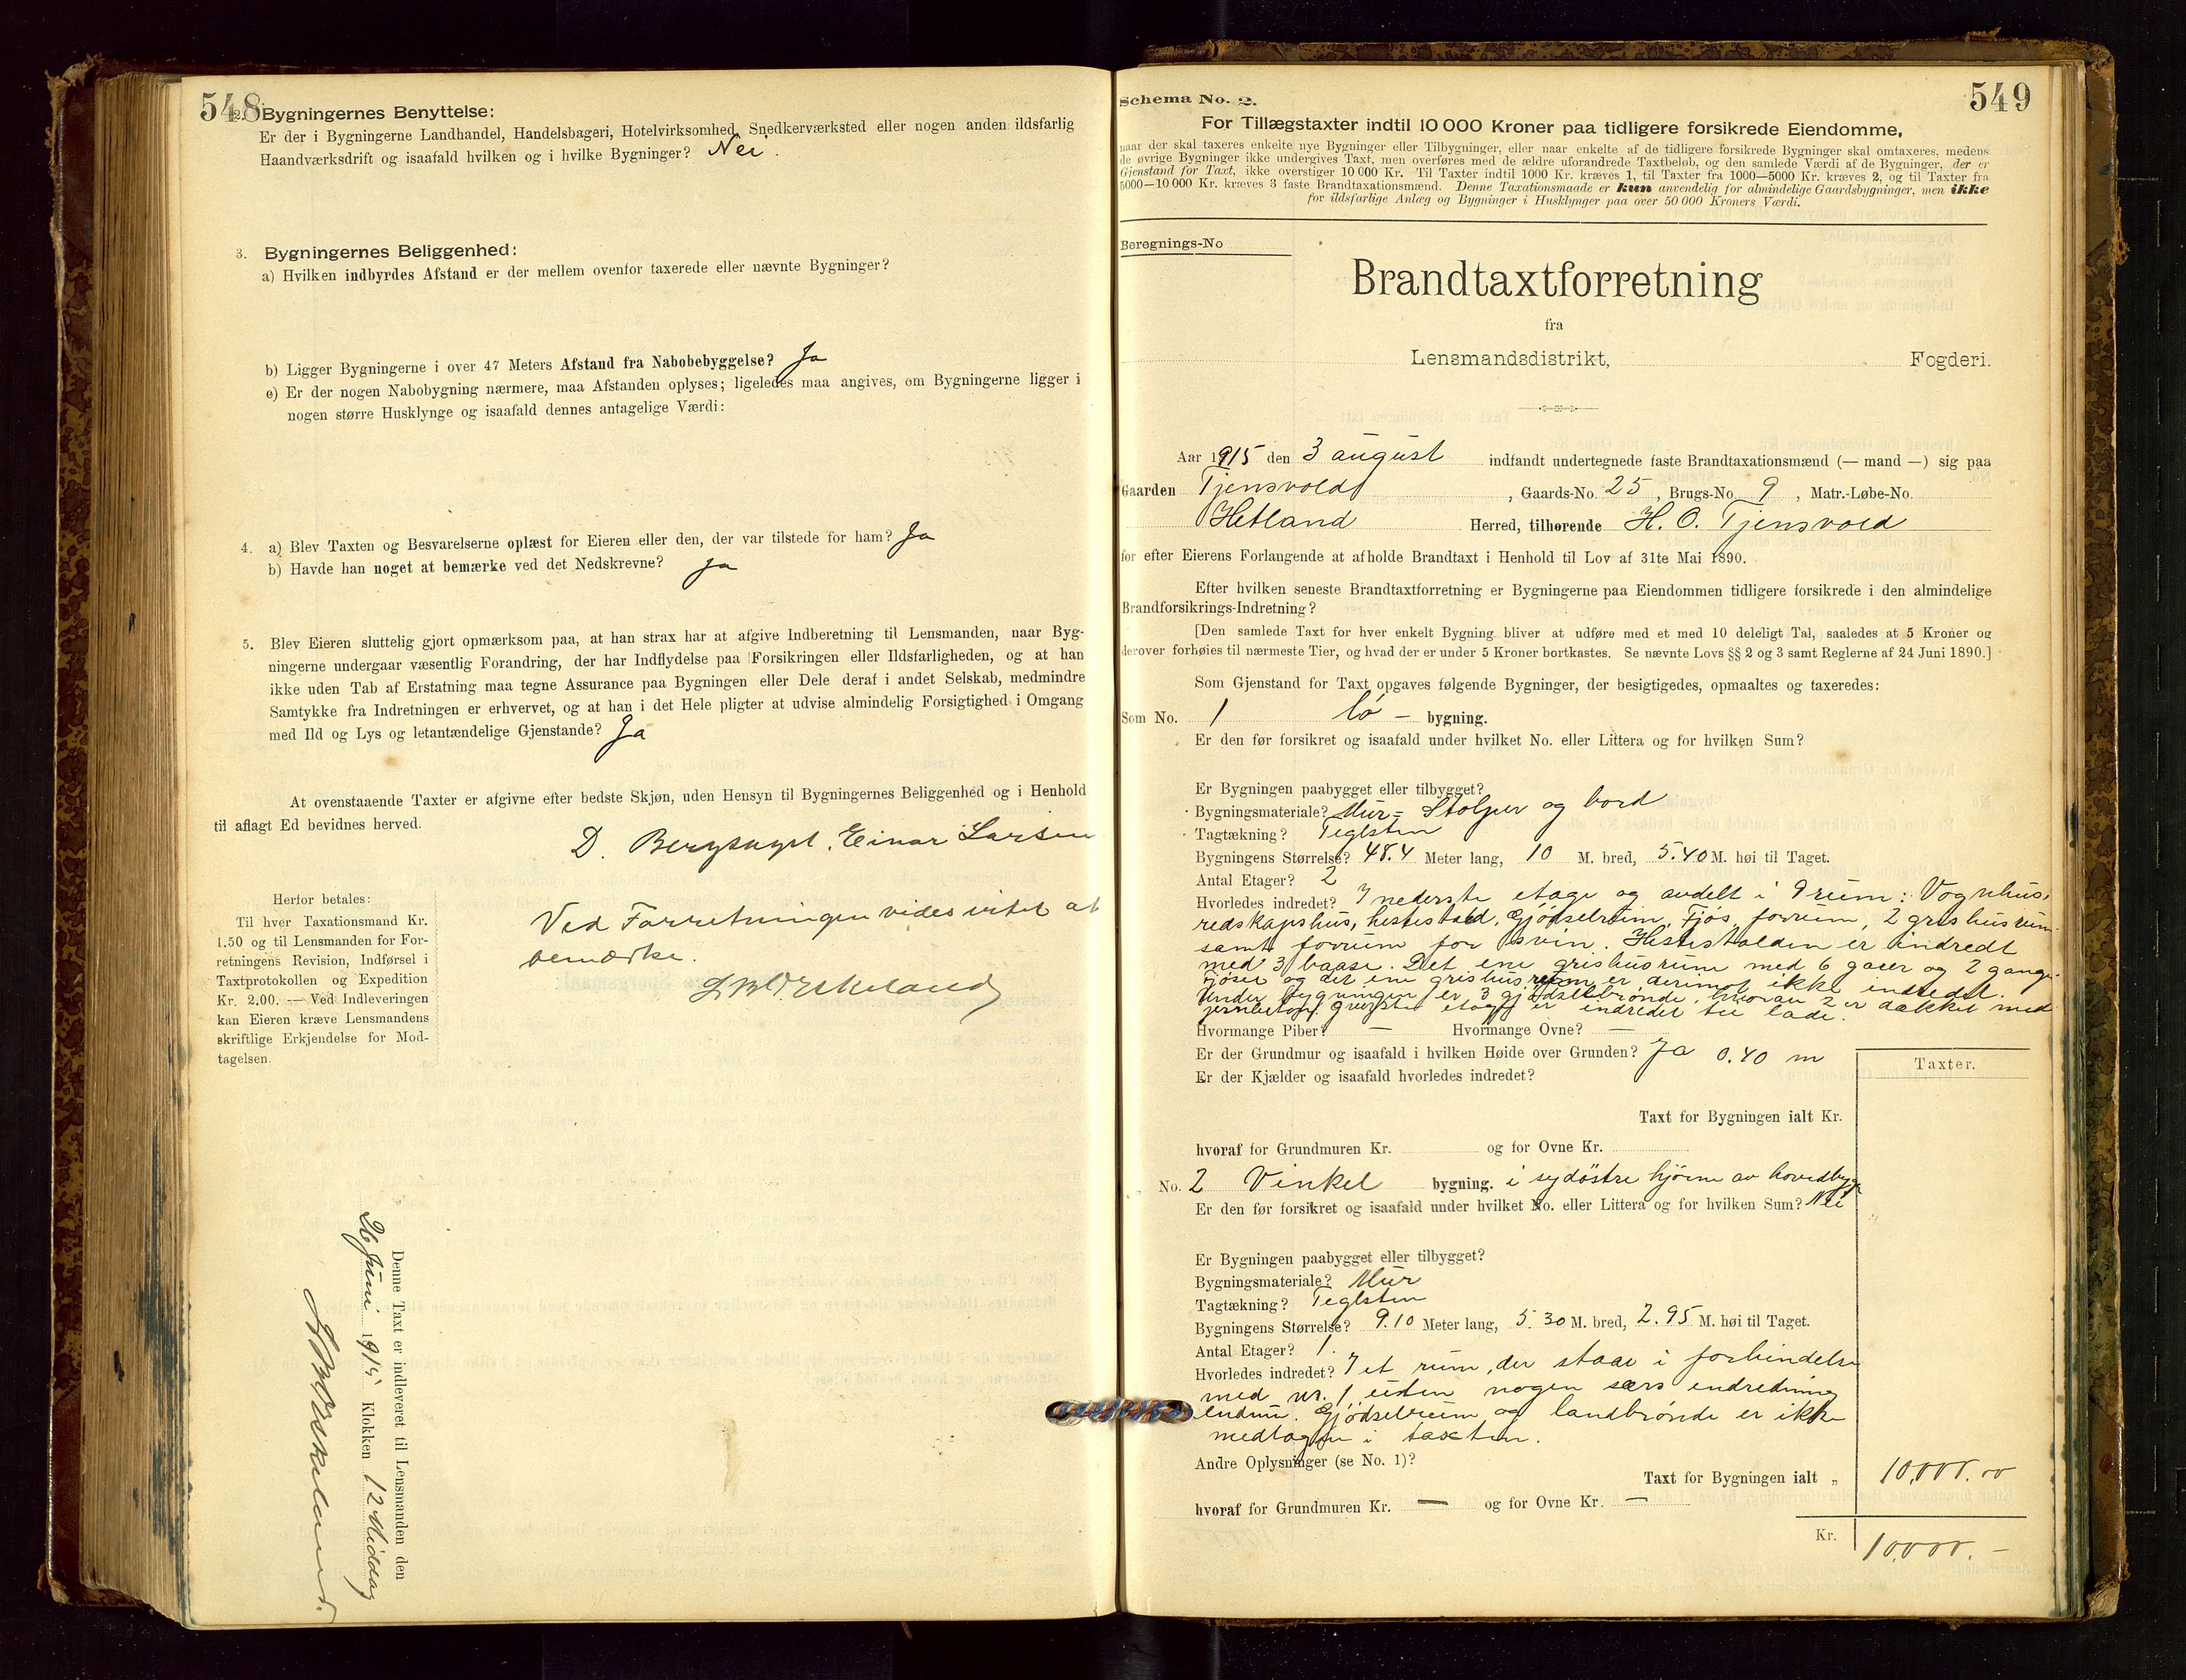 548
2. Bygningernes Benyttelse:
Er der i Bygningerne Landhandel, Handelsbageri, Hotelvirksomhed, Snedkerværksted eller nogen anden ildsfarlig
Haandværksdrift og isaafald hvilken og i hvilke Bygninger? Nei.
3. Bygningernes Beliggenhed:
a) Hvilken indbyrdes Afstand er der mellem ovenfor taxerede eller nævnte Bygninger?
b) Ligger Bygningerne i over 47 Meters Afstand fra Nabobebyggelse? Ja
c) Er der nogen Nabobygning nærmere, maa Afstanden oplyses; ligeledes maa angives, om Bygningerne ligger i
nogen større Husklynge og isaafald dennes antagelige Værdi:
4. a) Blev Taxten og Besvarelserne oplæst for Eieren eller den, der var tilstede for ham? Ja
b) Havde han noget at bemærke ved det Nedskrevne? Ja
5. Blev Eieren sluttelig gjort opmærksom paa, at han strax har at afgive Indberetning til Lensmanden, naar Byg-
ningerne undergaar væsentlig Forandring, der har Indflydelse paa Forsikringen eller Ildsfarligheden, og at han
ikke uden Tab af Erstatning maa tegne Assurance paa Bygningen eller Dele deraf i andet Selskab, medmindre
Samtykke fra Indretningen er erhvervet, og at han i det Hele pligter at udvise almindelig Forsigtighed i Omgang
med Ild og Lys og letantændelige Gjenstande? Ja
At ovenstaaende Taxter er afgivne efter bedste Skjøn, uden Hensyn til Bygningernes Beliggenhed og i Henhold
til aflagt Ed bevidnes herved.
D. Bergsagel. Einar Larsen
Herfor betales:
Til hver Taxationsmand Kr.
1.50 og til Lensmanden for For-
retningens Revision, Indførsel i
Taxtprotokollen og Expedition
Kr. 2.00. — Ved Indleveringen
kan Eieren kræve Lensmandens
skriftlige Erkjendelse for Mod-
tagelsen.
Ved Forretningen vides intet at
bemærke.
Eskeland
Denne Taxt er indleveret til Lensmanden den
26 Juni 1915 Klokken 12 Middag
Eskeland.
549
Schema No. 2.
For Tillægstaxter indtil 10 000 Kroner paa tidligere forsikrede Eiendomme,
naar der skal taxeres enkelte nye Bygninger eller Tilbygninger, eller naar enkelte af de tidligere forsikrede Bygninger skal omtaxeres, medens
de øvrige Bygninger ikke undergives Taxt, men overføres med de ældre uforandrede Taxtbeløb, og den samlede Værdi af de Bygninger, der er
Gjenstand for Taxt, ikke overstiger 10 000 Kr. Til Taxter indtil 1000 Kr. kræves 1, til Taxter fra 1000—5000 Kr. kræves 2, og til Taxter fra
5000—10 000 Kr. kræves 3 faste Brandtaxationsmænd. Denne Taxationsmaade er kun anvendelig for almindelige Gaardsbygninger, men ikke
for ildsfarlige Anlæg og Bygninger i Husklynger paa over 50 000 Kroners Værdi.
Beregnings-No
Brandtaxtforretning
fra
Lensmandsdistrikt, Fogderi.
Aar 1915 den 3 august indfandt undertegnede faste Brandtaxationsmænd (— mand —) sig paa
Gaarden Tjensvold, Gaards-No. 25, Brugs-No. 9, Matr.-Løbe-No.
Hetland Herred, tilhørende H. O. Tjensvold
for efter Eierens Forlangende at afholde Brandtaxt i Henhold til Lov af 31te Mai 1890.
Efter hvilken seneste Brandtaxtforretning er Bygningerne paa Eiendommen tidligere forsikrede i den almindelige
Brandforsikrings-Indretning?
[Den samlede Taxt for hver enkelt Bygning bliver at udføre med et med 10 deleligt Tal, saaledes at 5 Kroner og
derover forhøies til nærmeste Tier, og hvad der er under 5 Kroner bortkastes. Se nævnte Lovs §§ 2 og 3 samt Reglerne af 24 Juni 1890.]
Som Gjenstand for Taxt opgaves følgende Bygninger, der besigtigedes, opmaaltes og taxeredes:
Som No. 1 Lö — bygning.
Er den før forsikret og isaafald under hvilket No. eller Littera og for hvilken Sum?
Er Bygningen paabygget eller tilbygget?
Bygningsmateriale? Mur= Stolper og bord
Tagtækning? Teglsten
Bygningens Størrelse? 48.4 Meter lang, 10 M. bred, 5.40 M. høi til Taget.
Antal Etager? 2
Hvorledes indredet? I nederste etage og avdelt i 9 rum: Vognhus,
redskapshus, hestestald, Gjödselrum, Fjös, forrum, 2 grishusrum
samt forrum for svin. Hestestalden er indredt
med 3 baase. Det ene grishusrum med 6 gaer og 2 gange.
Fjöset og det ene grishusrum er derimot ikke indredet.
Under bygningen er 3 gjödselbrønde, hvorav 2 er dækket med
jernbeton. Øverste etage er indredet til lade.
Hvormange Piber? — Hvormange Ovne? —
Er der Grundmur og isaafald i hvilken Høide over Grunden? Ja 0.40 m
Er der Kjælder og isaafald hvorledes indredet?
Taxter.
Taxt for Bygningen ialt Kr.
hvoraf for Grundmuren Kr. og for Ovne Kr.
„ No. 2 Vinkel bygning. i sydöstre hjörne av hovedbygn
Er den før forsikret og isaafald under hvilket No. eller Littera og for hvilken Sum? Nei
Er Bygningen paabygget eller tilbygget?
Bygningsmateriale? Mur
Tagtækning? Teglsten
Bygningens Størrelse? 9.10 Meter lang, 5.30 M. bred, 2.95 M. høi til Taget.
Antal Etager? 1.
Hvorledes indredet? I et rum, der staar i forbindelse
med nr. 1 uden nogen særs indredning
endnu. Gjödselrum og landbrønde er ikke
medtagen i taxten.
Andre Oplysninger (se No. 1)?
Taxt for Bygningen ialt „ 10,000.00
hvoraf for Grundmuren Kr. — og for Ovne Kr. —
Kr. 10,000.—